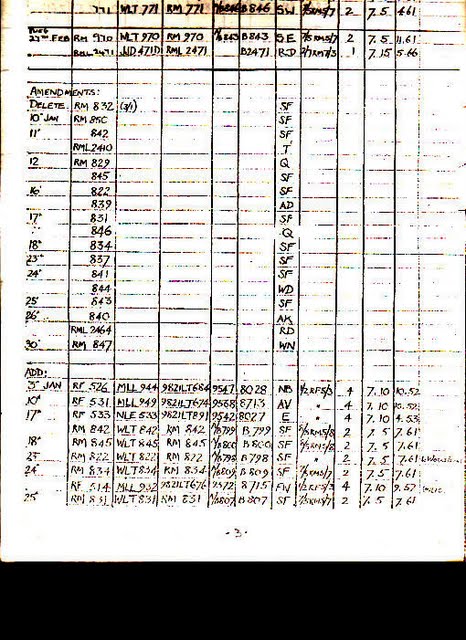 771 WLT 771 RM 771 B846 SW 2 7.5 4.61
27th FEB RM 970 WLT 970 RM 970 B843 SE 2 7.5 11.61
RML 2471 JJD 471D RML 2471 B2471 RD 1 7.15 5.66
AMENDMENTS:
DELETE: RM 832 (3/1) SF
10th JAN RM 850 SF
11" 842 SF
RML 2410 T
12 RM 829 Q
845 SF
16" 822 SF
839 AD
17" 831 SF
846 Q
18" 834 SF
23rd 837 SF
24" 841 SF
844 WD
25" 843 SF
26" 840 AK
RML 2464 RD
30" RM 847 WN
ADD:
3rd JAN RF 526 MLL 944 9821LT684 9547 8028 NB 1/2RF5/3 4 7.10 10.52
10th RF 531 MLL 949 9568 8713 AV " 4 7.10
17th RF 533 NLE 533 9821LT891 9542 8027 E " 4 7.10 4.53
RM 842 WLT 842 RM 842 B799 SF 2 7.5 7.61
18th RM 845 WLT 845 RM 845 B800 SF 2 7.5 7.61
RM 822 WLT 822 RM 822 B798 SF " 2 7.5 7.61
24" RM 834 WLT 834 RM 834 B809 SF 2 7.5 7.61
RF 514 MLL 932 9821LT676 8715 FW 4 7.10 9.52
25" RM 831 WLT 831 RM 831 B807 SF 2 7.5 7.61
- 3 -